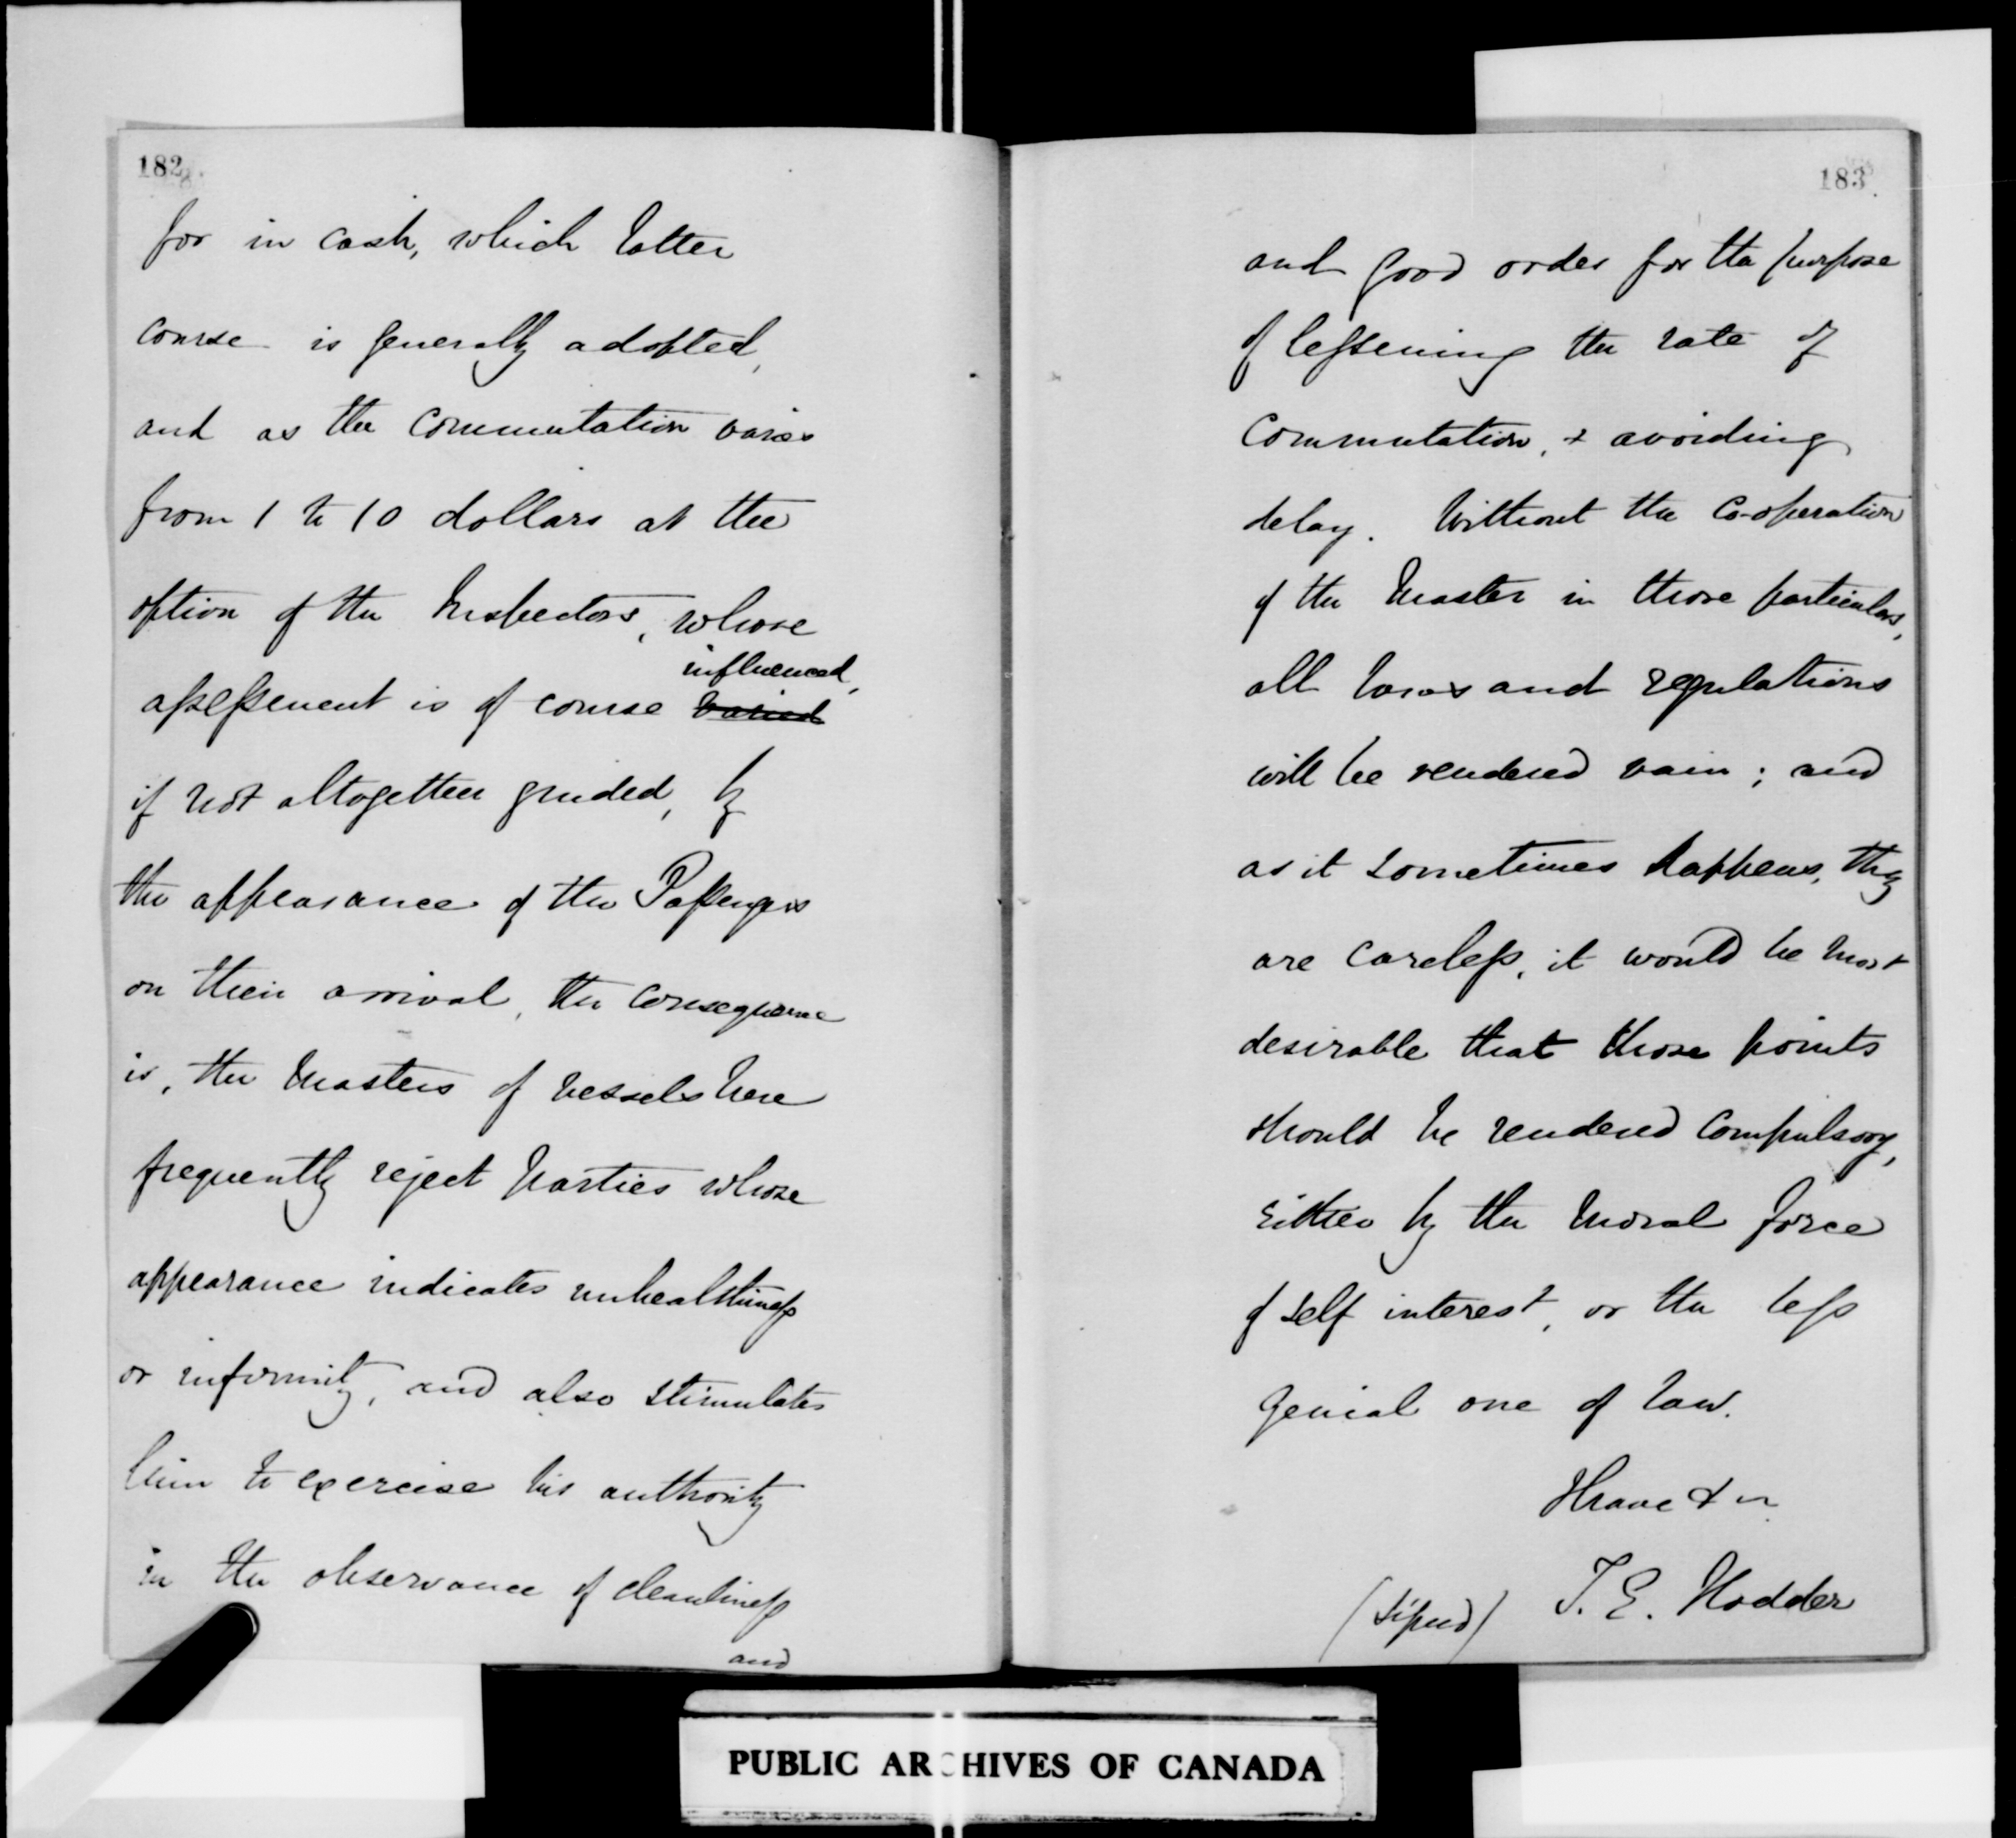 182
for in cash, which latter
course is generally adopted,
and as the commutation varies
from 1 to 10 dollars at the
option of the Inspectors, whose
influenced,
assessment is of course varied
if not altogether guided, by
the appearance of the Passengers
on their arrival, the consequence
is, the Masters of vessels here
frequently reject parties whose
appearance indicates unhealthiness
or infirmity, and also stimulates
him to exercise his authority
in the observance of cleanliness
and
183
and good order for the purpose
of lessening the rate of
Commutation, & avoiding
delay. Without the Co-operation
of the Master in those particulars,
all laws and regulations
will be rendered vain; and
as it sometimes happens, they
are careless, it would be most
desirable that those points
should be rendered compulsory,
either by the moral force
of self interest, or the less
genial one of law.
I have &
(Signed) T. E. Hodder
PUBLIC ARCHIVES OF CANADA